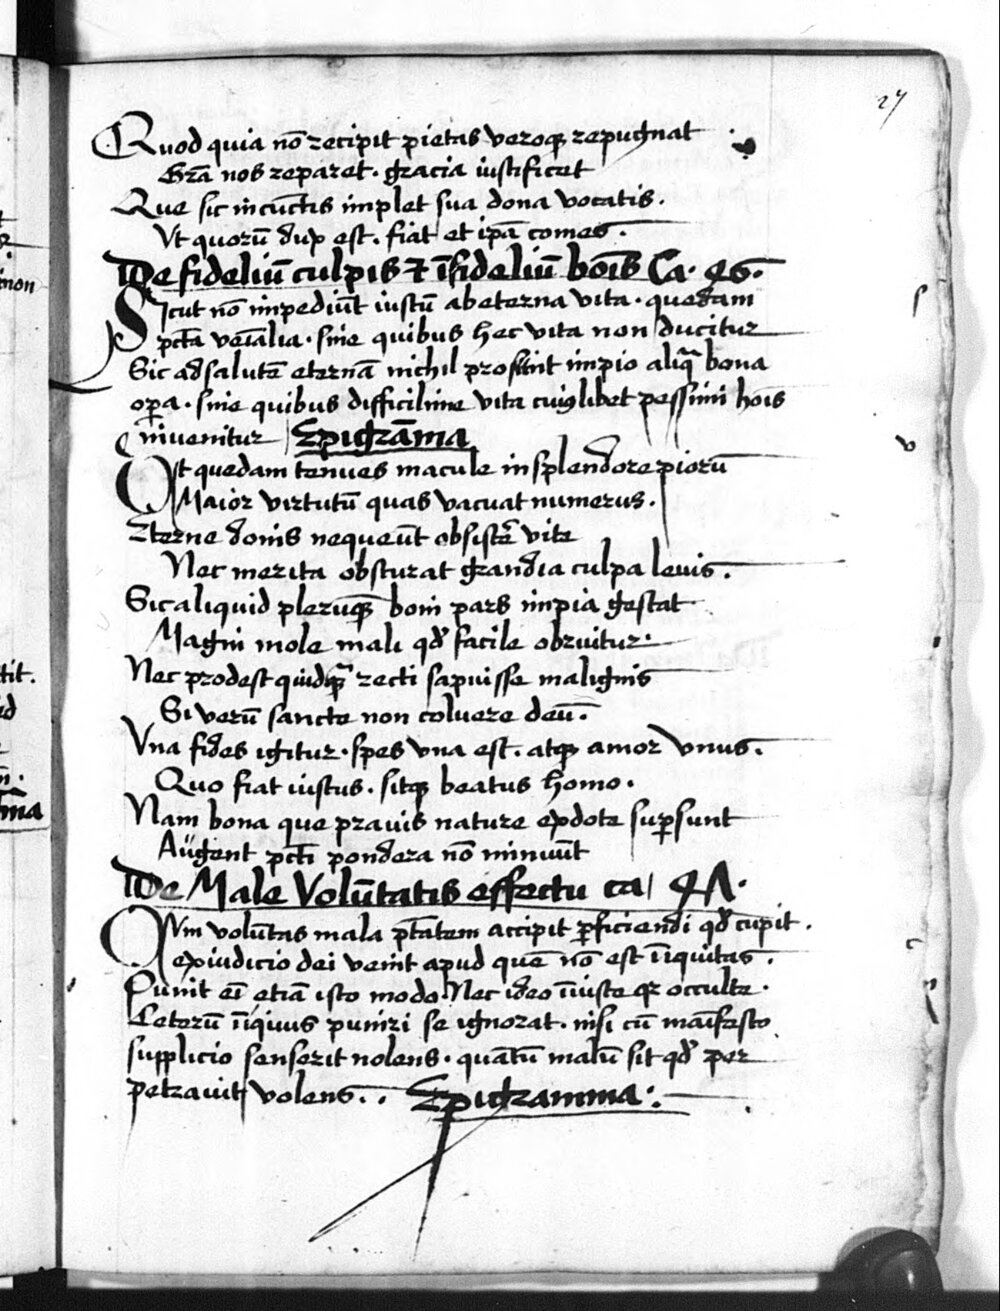 27
Quod quia nō recipit pietas veroqꝫ repugnat
Grā nos reparet. gracia iustificet
Que sic in cūctis implet sua dona vocatis.
Vt quorū dux est. fiat et ip̄a comes.
De fideliū culpis ⁊ īfideliū bonīs Ca. 46.
Sicut nō impediūt iustū ab eterna vita. quedam
pctā venīalia. sine quibus hec vita non ducitur
Sic ad salutē eternā nichil prosunt impio aliqā bona
opā. sine quibus difficilime vita cuiuslibet pessimi hoīs
invenitur Epigrāma
Est quedam tenues macule in splendore piorū
Maior virtutū quas vacuat numerus.
Eterne donis nequeūt obsistē vite
Nec merita obscurat grandia culpa levis.
Sic aliquid plerūqꝫ boni pars impia gestat
Magni mole mali qd̓ facile obruitur.
Nec prodest quidqā recti sapuisse malignis
Si verū sancte non coluere deū.
Vna fides igitur. spes vna est. atqꝫ amor vnus.
Quo fiat iustus. sitqꝫ beatus homo.
Nam bona que pravis nature ex dote suꝑsunt
Augent pcti pondera nō minuūt
De Male Volūtatis effectu ca 47.
Cum volūtas mala ptātem accipit ꝑficiendi qd̓ cupit.
ex iudicio dei venit apud quē nō est īiquitas.
Punit eī etiā isto modo Nec ideo īiuste qꝛ occulte.
Ceterū īiquus puniri se ignorat. nisi cū manīfesto
supplicio senserit nolens. quātū malū sit qd̓ per
petravit volens. . Epigramma:.